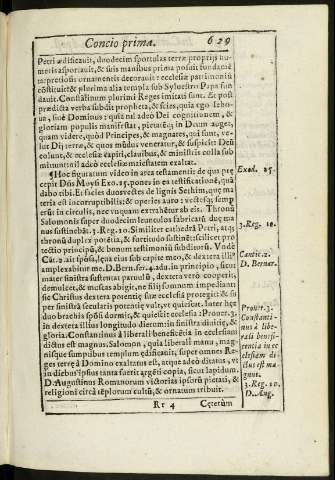 Concio prima. 629
Petri ædificauit, duodecim sportulas terræ proprijs hu-
meris asportauit, & suis manibus prima posuit fundamē
ta: pretiosis ornamentis decorauit: ecclesiæ patrimoniū
cōstituit & plurima alia templa sub Syluestro Papa fun
dauit. Constantinum plurimi Reges imitati sunt. Et post
prædicta verba subdit propheta, & scies, quia ego Ieho-
ua, siuè Dominus: quia nil adeò Dei cognitionem, &
gloriam populis manifestat, pietatēq́; in Deum auget,
quam videre, quòd Principes, & magnates, qui sunt, ve-
lut Dij terræ, & quos mūdus veneratur, & suspicit: Deū
colunt, & ecclesiæ capiti, clauibus, & ministris colla sub
mittunt: nil adeò ecclesiæ maiestatem exaltat.
¶Hoc figuratum video in arca testamenti: de qua præ
cepit Dñs Moysi Exo. 25. ponet in ea testificationē, quā
dabo tibi. Et facies duos vectes de lignis Sethim, quæ ma
teria est incorruptibilis: & operies auro: vectesq́; semp
erūt in circulis, nec vnquam extrahētur ab eis. Thronū
Salomonis super duodecim leunculos fabricatū duæ ma
nus sustinebāt. 3. Reg. 10. Similiter cathedrā Petri, atq́;
thronū duplex potētia, & fortitudo sustinēt: scilicet pro
tectio principū, & bonum testimoniū subditorū. Vndè
Cāt. 2. ait spōsa, lęua eius sub capite meo, & dextera illiꝰ
amplexabitur me. D. Bern. ser. 4. adu. in principio, sicut
mater sinistra sustentat paruulū, dextera verò cooperit,
demulcet, & muscas abigit, ne filij somnum impediant:
sic Christus dextera potentię suæ ecclesiā protegit: & su
per sinistrā secularis potentię vult, vt quiescat. Inter hęc
duo brachia spōsi dormis, & quiescit ecclesia: Prouer. 3.
in dextera illius longitudo dierum: in sinistra diuitiæ, &
gloria. Constantinus à liberali beneficētia in ecclesiam
dictus est magnus. Salomon, quia liberali manu, mag-
nisque sumptibus templum ædificauit, super omnes Re-
ges terræ à Domino exaltatus est, atque adeò ditatus, vt
in diebus ipsius tanta fuerit argēti copia, sicut lapidum.
D. Augustinus Romanorum victorias ipsorū pietati, &
religioni circà tēplorum cultū, & ornatum tribuit.
Rr 4 Cęterùm
Exod. 25.
3. Reg. 10.
Cantic. 2.
D. Bernar.
Prouer. 3.
Constanti-
nus à libe-
rali benefi-
centia in ec
clesiam di-
ctus est ma
gnus.
3. Reg. 10.
D. Aug.